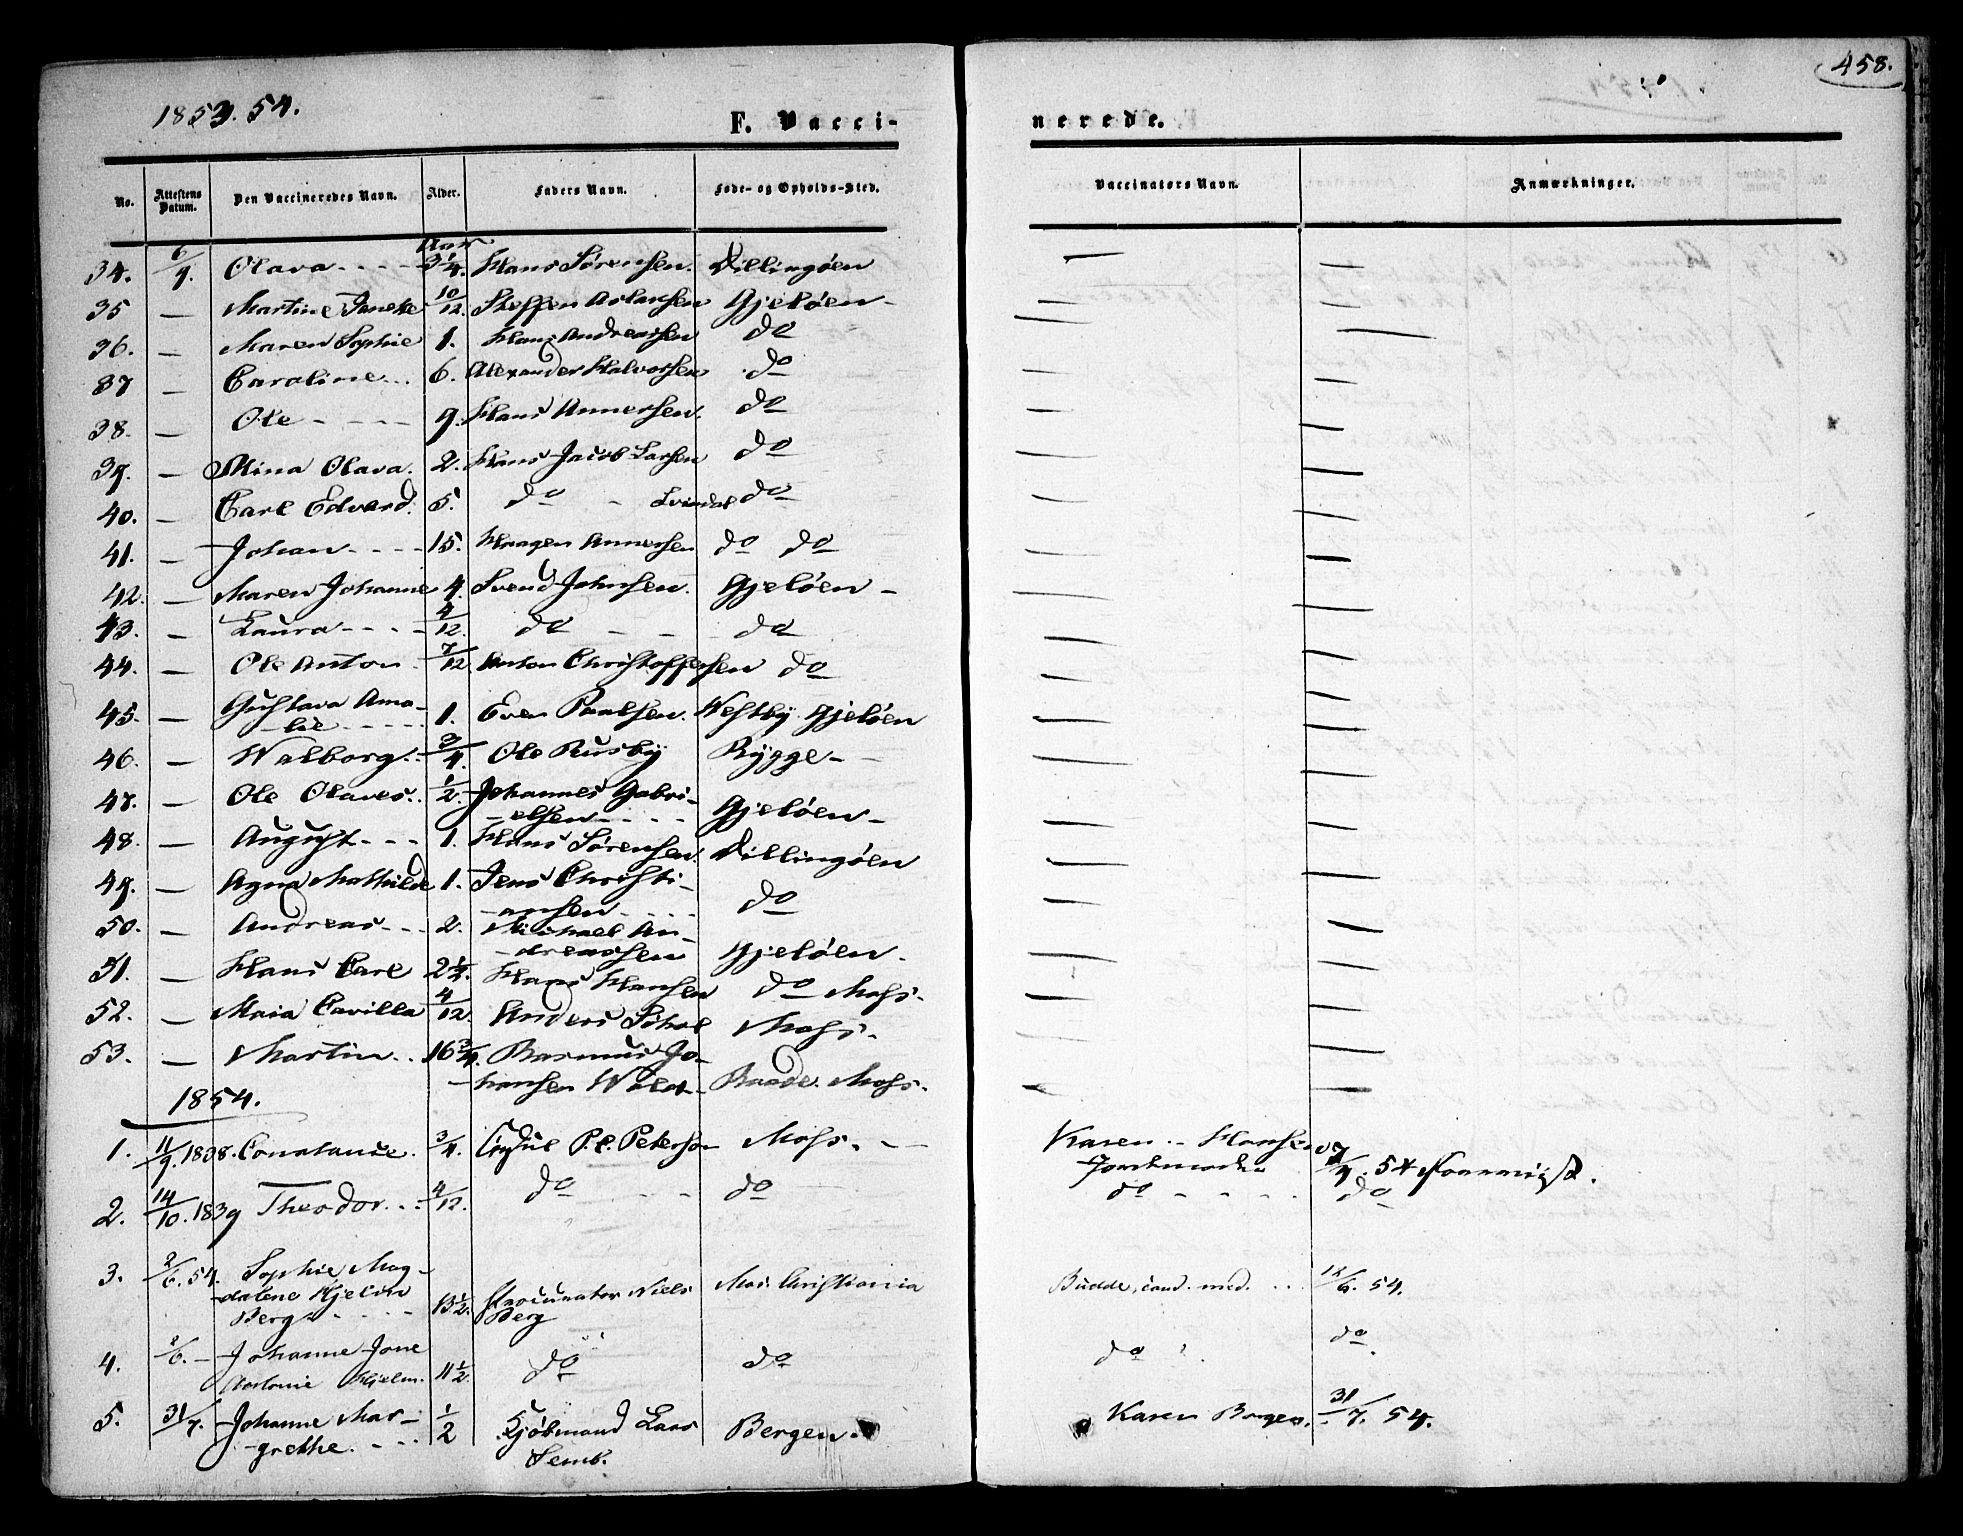 458.
1853. 54.
F. Vacci-
nerede.
No. Attestens Datum. Den Vaccineredes Navn. Alder. Faders Navn. Føde- og Opholds-Sted. Vaccinators Navn. Anmærkninger.
Aar
34. 6/9. Olava - - - - 3 1/4. Hans Sørensen. Dillingøen — —
35 — Martine 10/12. Steffen Gjeløen - — —
36. — Maren Sophie 1. Hans Andreassen do — —
37 — Caroline... 6. Alexander Halvorsen do — —
38. — Ole - - - - 9. Hans Annersen. do — —
39. — Mina Olava. 2. Hans Jacob Larsen do — —
40. — Carl Edvard. 5. do - do — —
41. — Johan - - - - 15. Haagen Annersen do do — —
42. — Maren Johanne 4. Svend Johnsen. Gjeløen - — —
43. — Laura - - - - 4/12. do - - do — —
44. — Ole Anton. 7/12. Anton Christoffersen do — —
45. — Gustava Ama-
lie - - - - 1. Even Paulsen. Westby. Gjeløen — —
46. — Walborg.. 3/4. Ole Rusby Rygge - — —
47. — Ole Olaves.. 1/2. Johannes Gabri-
elsen - - - - Gjeløen - — —
48. — August - - - 1. Hans Sørensen. Dillingøen — —
49. — Agna Mathilde 1. Jens Christi-
ansen - - - - do — —
50. — Andreas - - - 2. Michael An-
dreassen Gjeløen. — —
51. — Hans Carl 2 1/2. Hans Hansen do Moss. — —
52. — Maia Cavilla 4/12. Anders Moss. — —
53. — Martin.. 16 3/4. Rasmus Jo-
hansen Baade. Moss. — —
1854.
1. 11/9. 1838. Constance. 3/4. P. C. Peterson Moss. - — Karen - Hansen 7/9. 54
2. 14/10. 1839 Theodor... 4/12. do - - do do - - - - do
3. 2/6. 54. Sophie Mag-
dalene Hjelm
Berg - - - - 13 1/2. Procurator Niels
Berg Christiania Budde, cand. med. ... 12/6. 54.
4. 2/6. - Johanne
Antonie Hjelm. 11 1/2. do do do do.
5. 31/7. Johanne Mar-
grethe. - - - 1/2 Kjøbmand Lars
Semb. Bergen. Karen Borgen. 31/7. 54.